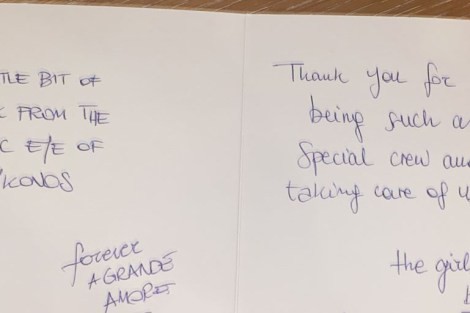 TLE BIT OF
FROM THE
C E/E OF
forever
A GRANDE
Thank you for
being such a
Special crew and
taking care of u
the girl